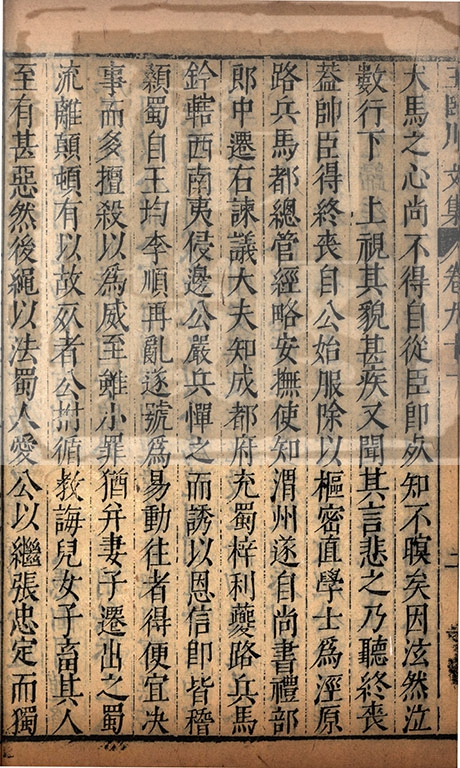 王臨川文集 卷九十一 二
犬馬之心尚不得自從臣即死知不瞑矣因泫然泣
數行下 上視其貌甚疾又聞其言悲之乃聽終喪
葢帥臣得終喪自公始服除以樞密直學士爲涇原
路兵馬都總管經略安撫使知渭州遂自尚書禮部
郎中遷右諫議大夫知成都府充蜀梓利夔路兵馬
鈐轄西南夷侵邊公嚴兵憚之而誘以恩信即皆稽
顙蜀自王均李順再亂遂號爲易動往者得便宜决
事而多擅殺以爲威至雖小罪猶并妻子遷出之蜀
流離顛頓有以故死者公拊循教誨兒女子畜其人
至有甚惡然後繩以法蜀人愛公以繼張忠定而獨